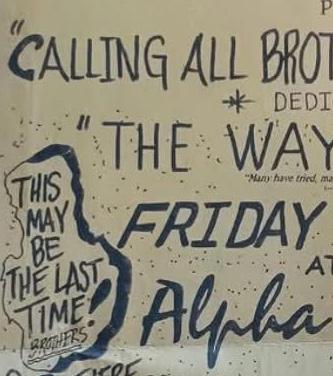 P
"CALLING ALL BROT
* DEDI
"THE WAY
"Many have tried, ma
FRIDAY
AT
Alpha
THIS
MAY
BE
THE LAST
TIME!
BROTHERS.